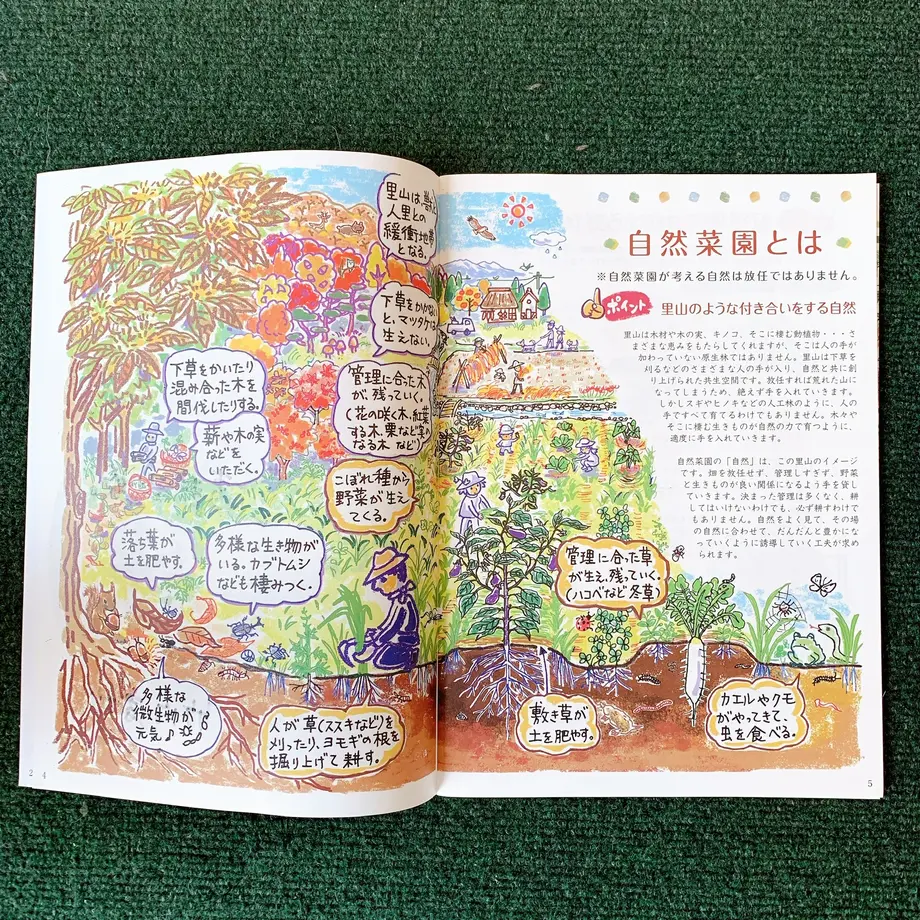 里山は
人里との
緩衝地帯
となる。
下草をかかない
と、マツタケは
生えない。
下草をかいたり
混み合った木を
間伐したりする。
管理に合った木
が残っていく。
(花の咲く木、紅葉
する木、栗など実の
なる木 など)
薪や木の実
などを
いただく。
こぼれ種から
野菜が生え
てくる。
落ち葉が
土を肥やす。
多様な生き物が
いる。カブトムシ
なども棲みつく。
多様な
微生物が
元気♪
人が草(ススキなど)を
刈ったり、ヨモギの根を
掘り上げて耕す。
2 4
自然菜園とは
※自然菜園が考える自然は放任ではありません。
ポイント 里山のような付き合いをする自然
里山は木材や木の実、キノコ、そこに棲む動植物・・・さ
まざまな恵みをもたらしてくれますが、そこは人の手が
加わっていない原生林ではありません。里山は下草を
刈るなどのさまざまな人の手が入り、自然と共に創
り上げられた共生空間です。放任すれば荒れた山に
なってしまうため、絶えず手を入れていきます。
しかしスギやヒノキなどの人工林のように、人の
手ですべて育てるわけでもありません。木々や
そこに棲む生きものが自然の力で育つように、
適度に手を入れていきます。
自然菜園の「自然」は、この里山のイメージ
です。畑を放任せず、管理しすぎず、野菜
と生きものが良い関係になるよう手を貸し
ていきます。決まった管理は多くなく、耕
してはいけないわけでも、必ず耕すわけで
もありません。自然をよく見て、その場
の自然に合わせて、だんだんと豊かにな
っていくように誘導していく工夫が求め
られます。
管理に合った草
が生え、残っていく。
(ハコベなど冬草)
敷き草が
土を肥やす。
カエルやクモ
がやってきて、
虫を食べる。
5